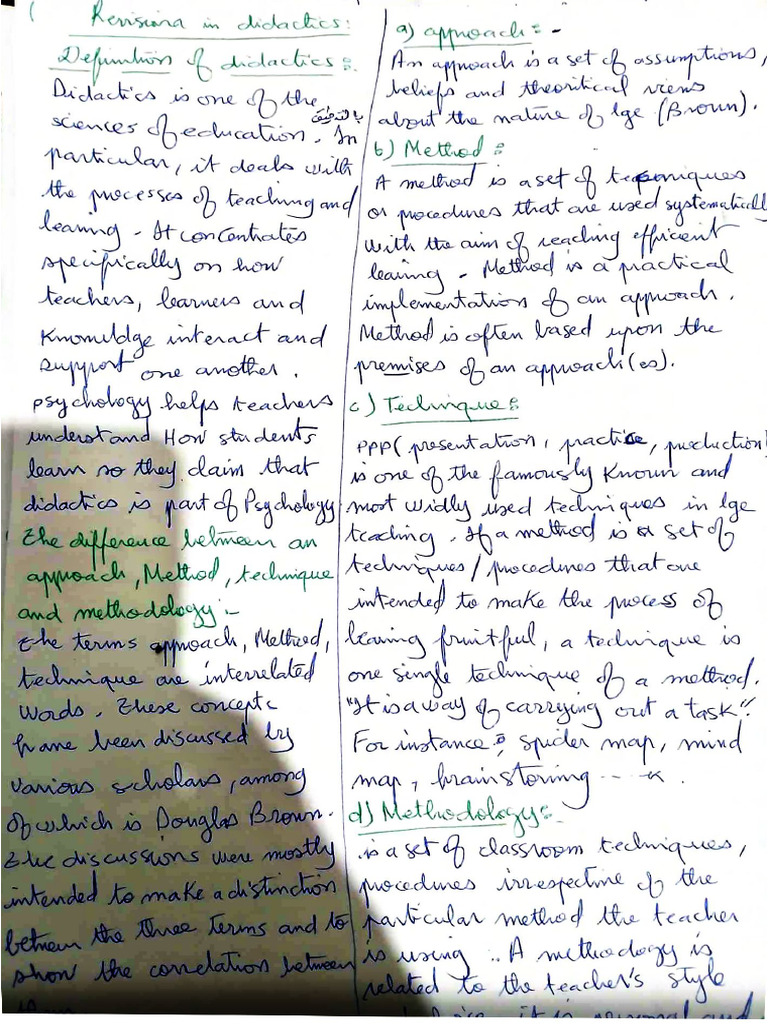 Revisions in didactics:
Definition of didactics:
Didactics is one of the
sciences of education. In
بالتدقيق
particular, it deals with
the processes of teaching and
learning - It concentrates
specifically on how
teachers, learners and
Knowuldge interact and
support one another.
psychology helps teachers
understand How students
learn so they claim that
didactics is part of Psychology
the difference between an
approach, Method, technique
and methodology:-
the terms approach, Method,
technique are interrelated
words. These concepts
have been discussed by
various scholars, among
of which is Douglas Brown.
the discussions were mostly
intended to make a distinction
between the three terms and to
show the correlation between
a) approach:-
An approach is a set of assumptions,
beliefs and theoritical views
about the nature of lge (Brown).
b) Method:
A method is a set of techniques
or procedures that are used systematically
with the aim of reaching efficient
learing - Method is a practical
implementation of an approach.
Method is often based upon the
premises of an approach(es).
c) Technique:
PPP( presentation, practice, production)
is one of the famously Known and
most widly used techniques in lge
teaching. If a method is a set of
techniques/procedures that are
intended to make the process of
learing fruitful, a technique is
one single technique of a method.
"It is a way of carrying out a task".
For instance:, spider map, mind
map, brainstoring ....
d) Methodology:-
is a set of classroom techniques,
procedures irrespective of the
particular method the teacher
is using .. A methodology is
related to the teacher's style
it is personal and